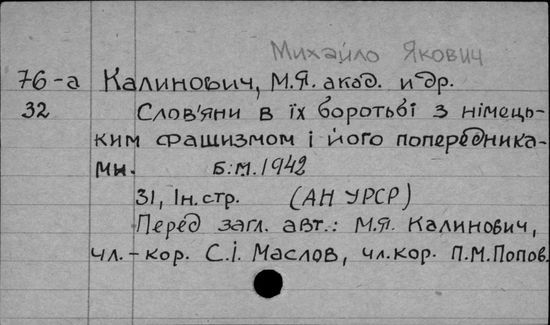 Михайло Якович
76-а Калинович, М.Я. акад. и др.
32 Слов'яни в їх боротьбі з німець-
ким фашизмом і його попередника-
ми. Б.М. 1942
31, Ін. стр. (АН УРСР)
Перед загл. авт.: М.Я. Калинович,
чл.-кор. С.І. Маслов, чл.кор. П.М.Попов.